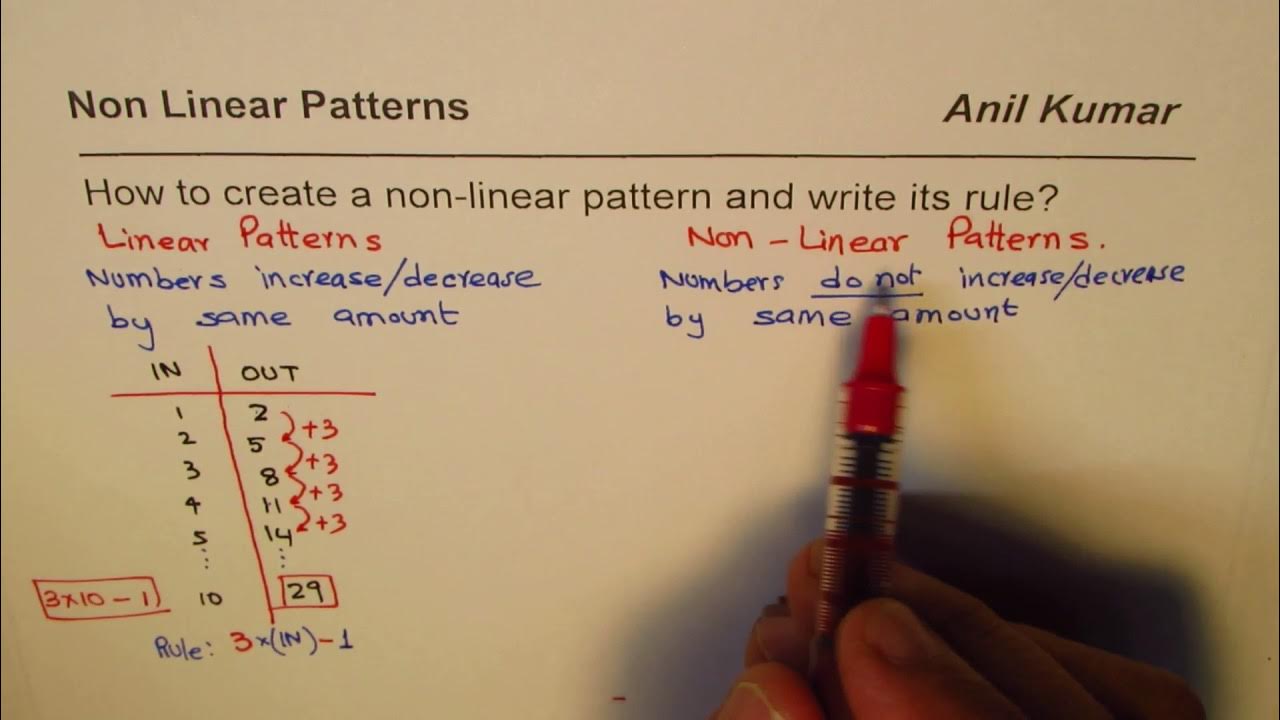 Non Linear Patterns Anil Kumar
How to create a non-linear pattern and write its rule?
Linear Patterns
Numbers increase/decrease
by same amount
IN OUT
1 2
+3
2 5
+3
3 8
+3
4 11
+3
5 14
⋮ ⋮
3×10-1 10 29
Rule: 3×(IN)-1
Non-Linear Patterns.
Numbers do not increase/decrease
by same amount